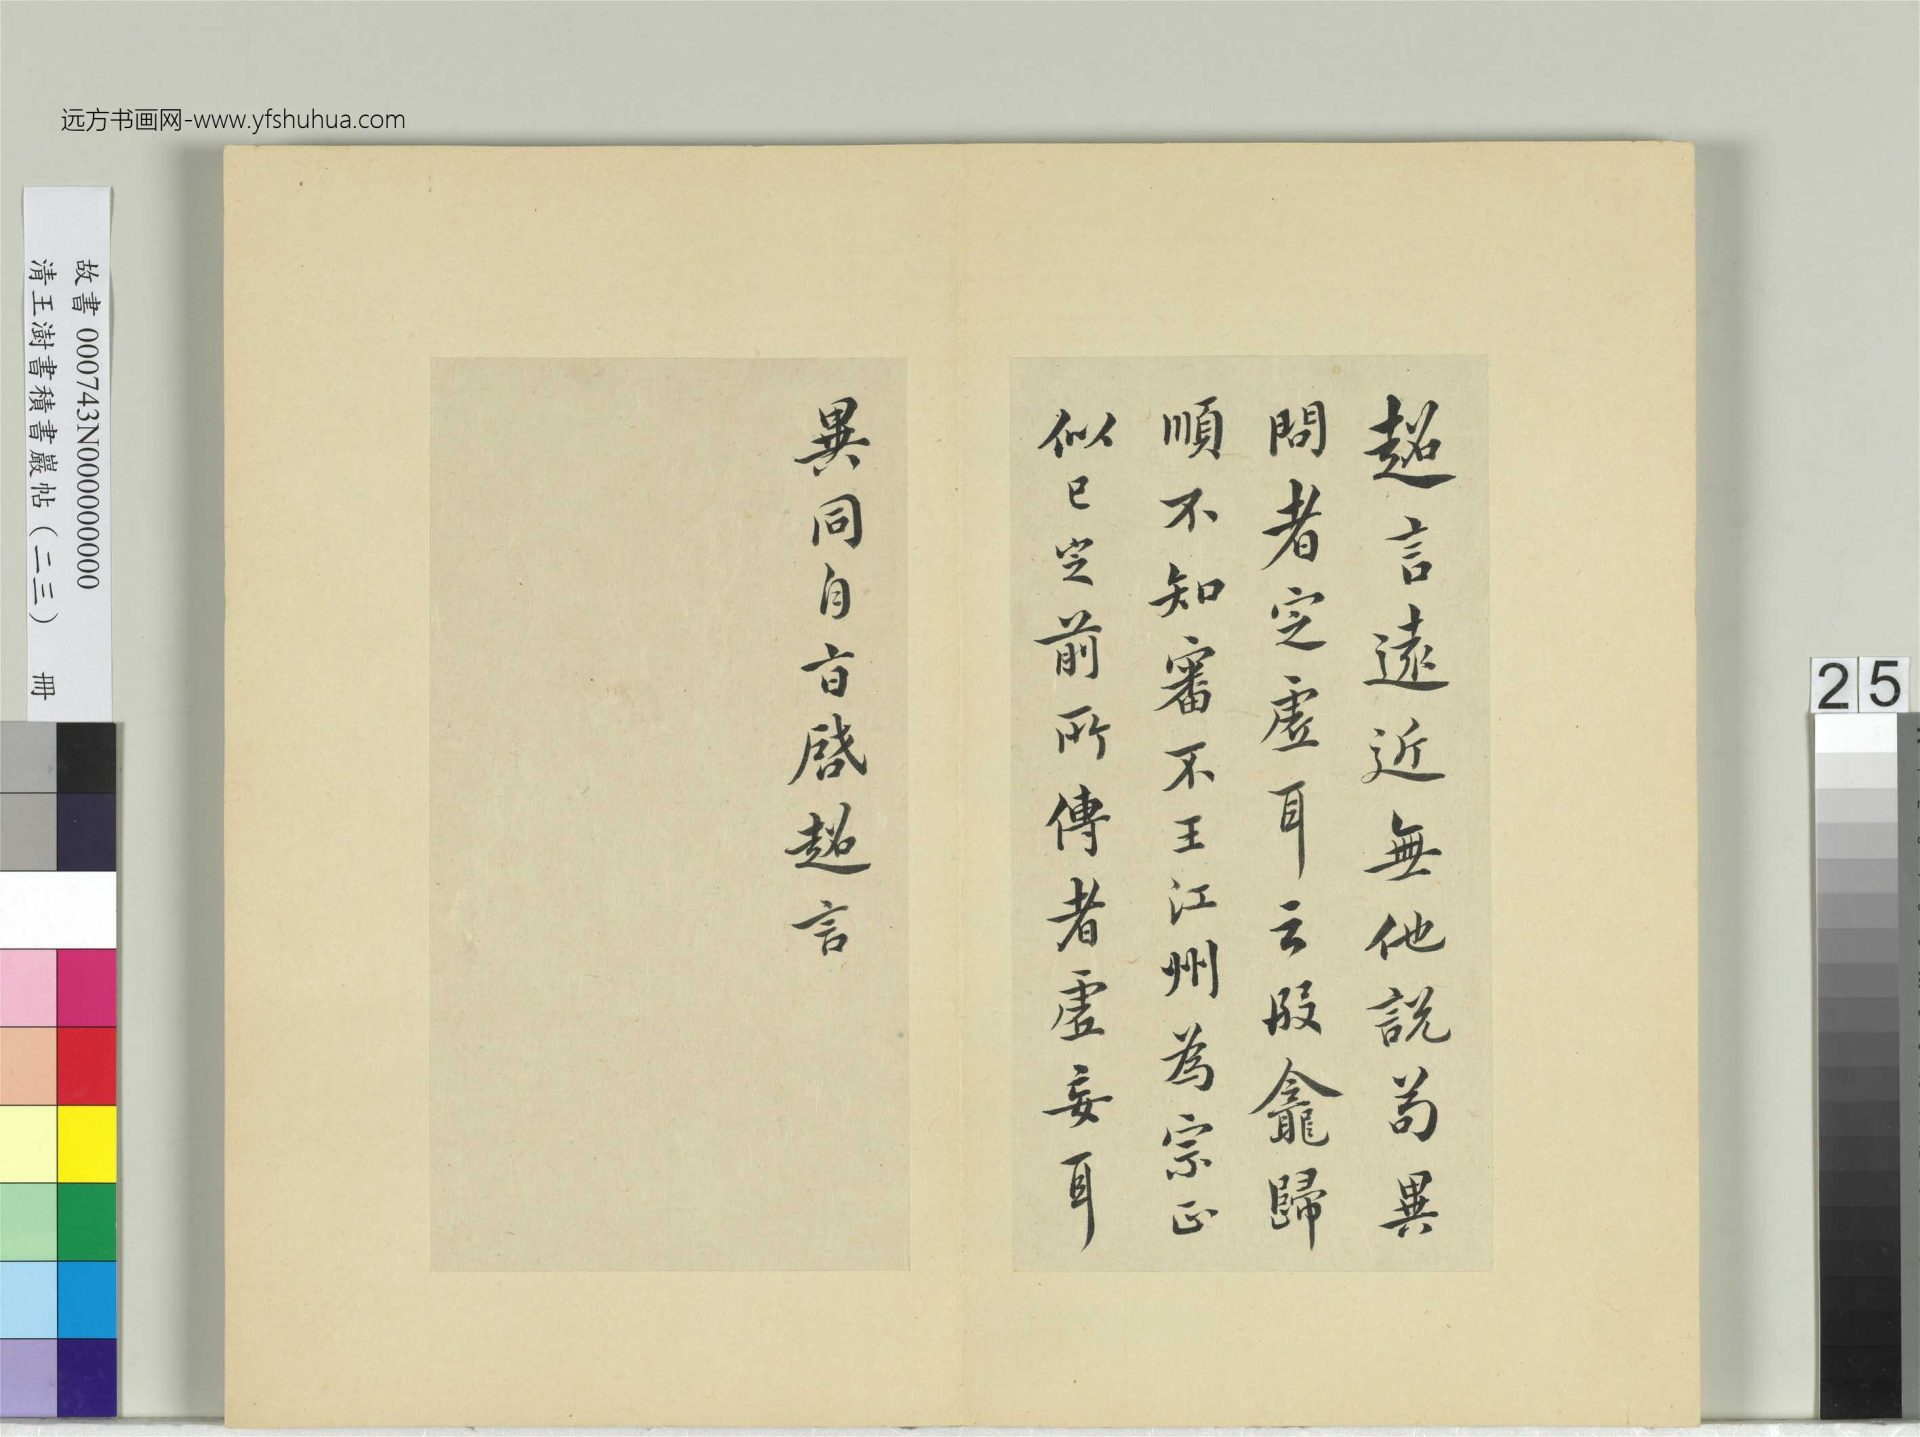 远方书画网-www.yfshuhua.com
故書 000743N000000000
清王澍書積書巖帖（二三） 冊
25
超言遠近無他說苟異
問者定虛耳云殷龕歸
順不知審不王江州為宗正
似已定前所傳者虛妄耳
異同自旨啟超言